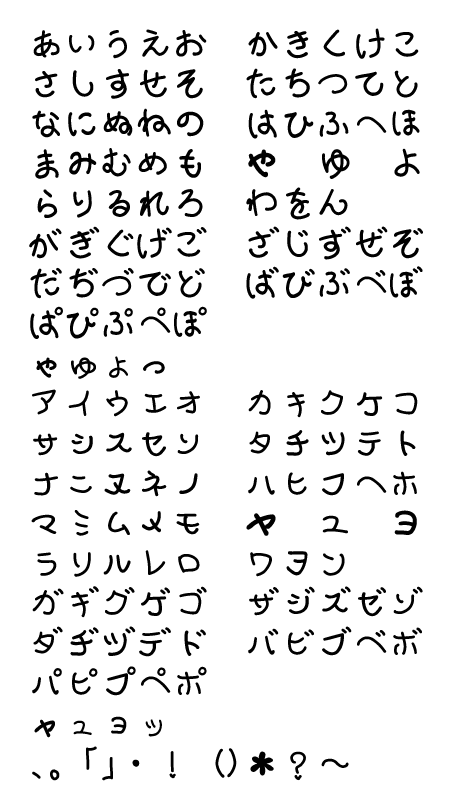 あいうえお かきくけこ
さしすせそ たちつてと
なにぬねの はひふへほ
まみむめも や ゆ よ
らりるれろ わをん
がぎぐげご ざじずぜぞ
だぢづでど ばびぶべぼ
ぱぴぷぺぽ
ゃゅょっ
アイウエオ カキクケコ
サシスセソ タチツテト
ナニヌネノ ハヒフヘホ
マミムメモ ヤ ユ ヨ
ラリルレロ ワヲン
ガギグゲゴ ザジズゼゾ
ダヂヅデド バビブベボ
パピプペポ
ャュョッ
、。「」・！ （）＊？～